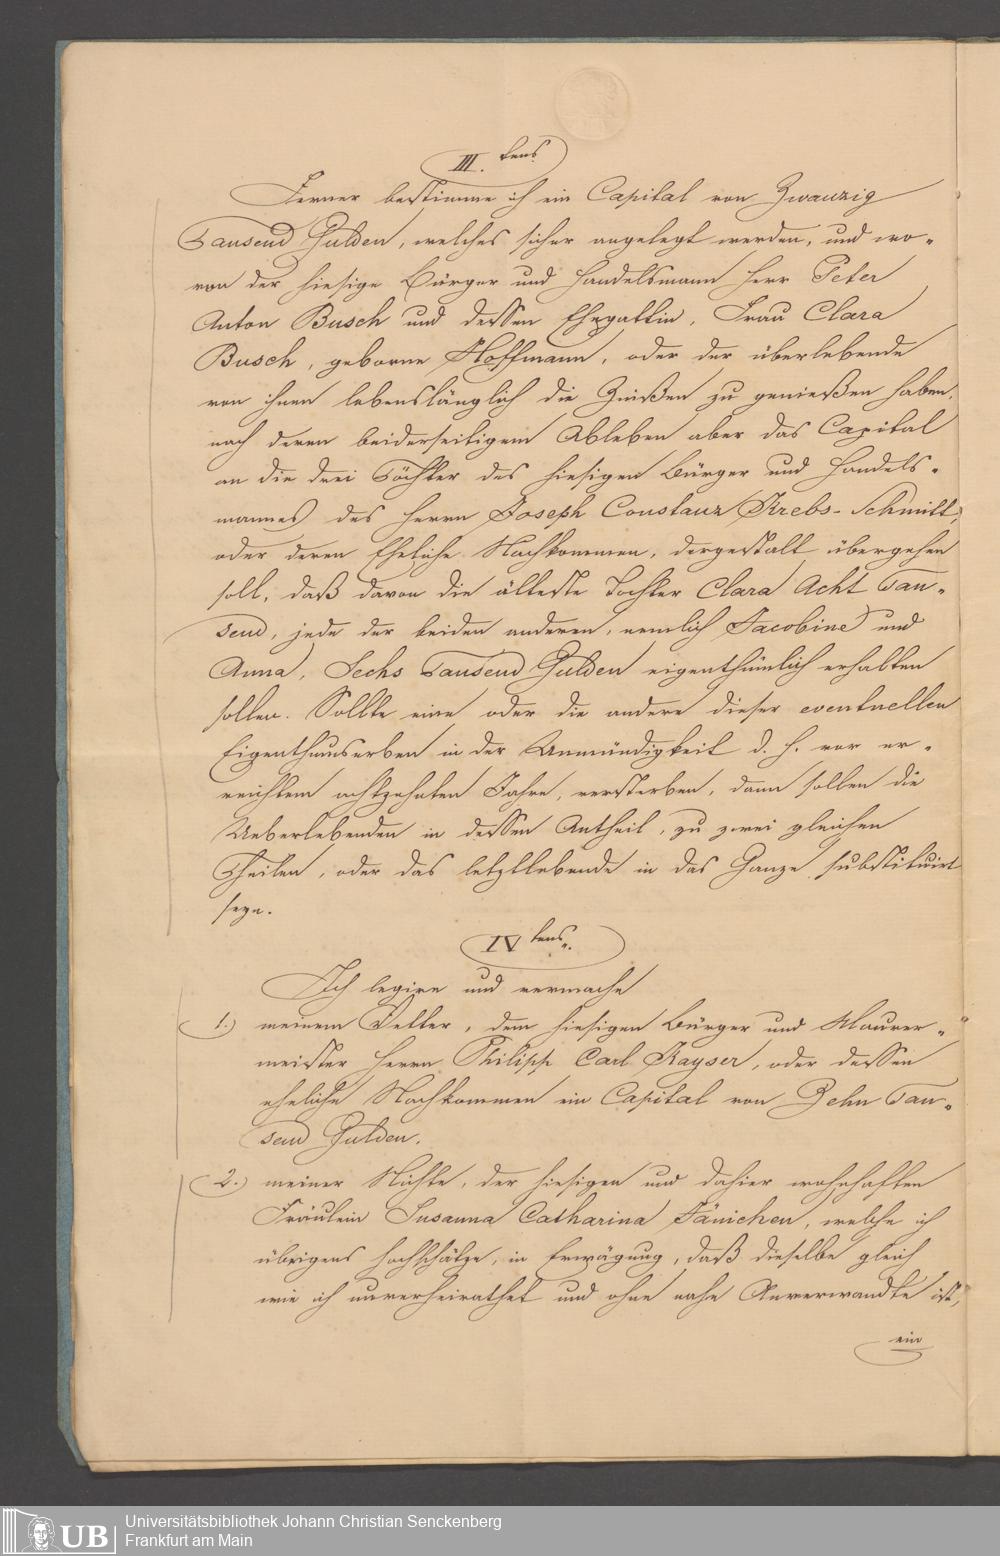 III.tens
Ferner bestimme ich ein Capital von Zwanzig
Tausend Gulden, welches sicher angelegt werden, und wo-
von der hiesige Bürger und Handelsmann Herr Peter
Anton Busch und dessen Ehegattin, Frau Clara
Busch, geborne Hoffmann, oder der überlebende
von ihnen lebenslänglich die Zinßen zu genießen haben,
nach deren beiderseitigem Ableben aber das Capital
an die drei Töchter des hiesigen Bürger und Handels-
mannes des Herrn Joseph Constanz Krebs-Schmitt,
oder deren Eheliche Nachkommen, dergestalt übergehen
soll, daß davon die älteste Tochter Clara Acht Tau-
send, jede der beiden anderen, nemlich Jacobine und
Anna, Sechs Tausend Gulden eigenthümlich erhalten
sollen. Sollte eine oder die andere dieser eventuellen
Eigenthumserben in der Unmündigkeit d. h. vor er-
reichtem achtzehnten Jahre, versterben, dann sollen die
Ueberlebenden in dessen Antheil, zu zwei gleichen
Theilen, oder das letztlebende in das Ganze substituirt
seyn.
IV tens.
Ich legire und vermache
1.) meinem Vetter, dem hiesigen Bürger und Maurer-
meister Herrn Philipp Carl Kayser, oder dessen
eheliche Nachkommen ein Capital von Zehn Tau-
send Gulden.
2.) meiner Nichte, der hiesigen und dahier wohnhaften
Fräulein Susanna Catharina Jänichen, welche ich
übrigens hochschätze, in Erwägung, daß dieselbe gleich
wie ich unverheirathet und ohne nahe Anverwandte ist,
ein
UB
Universitätsbibliothek Johann Christian Senckenberg
Frankfurt am Main